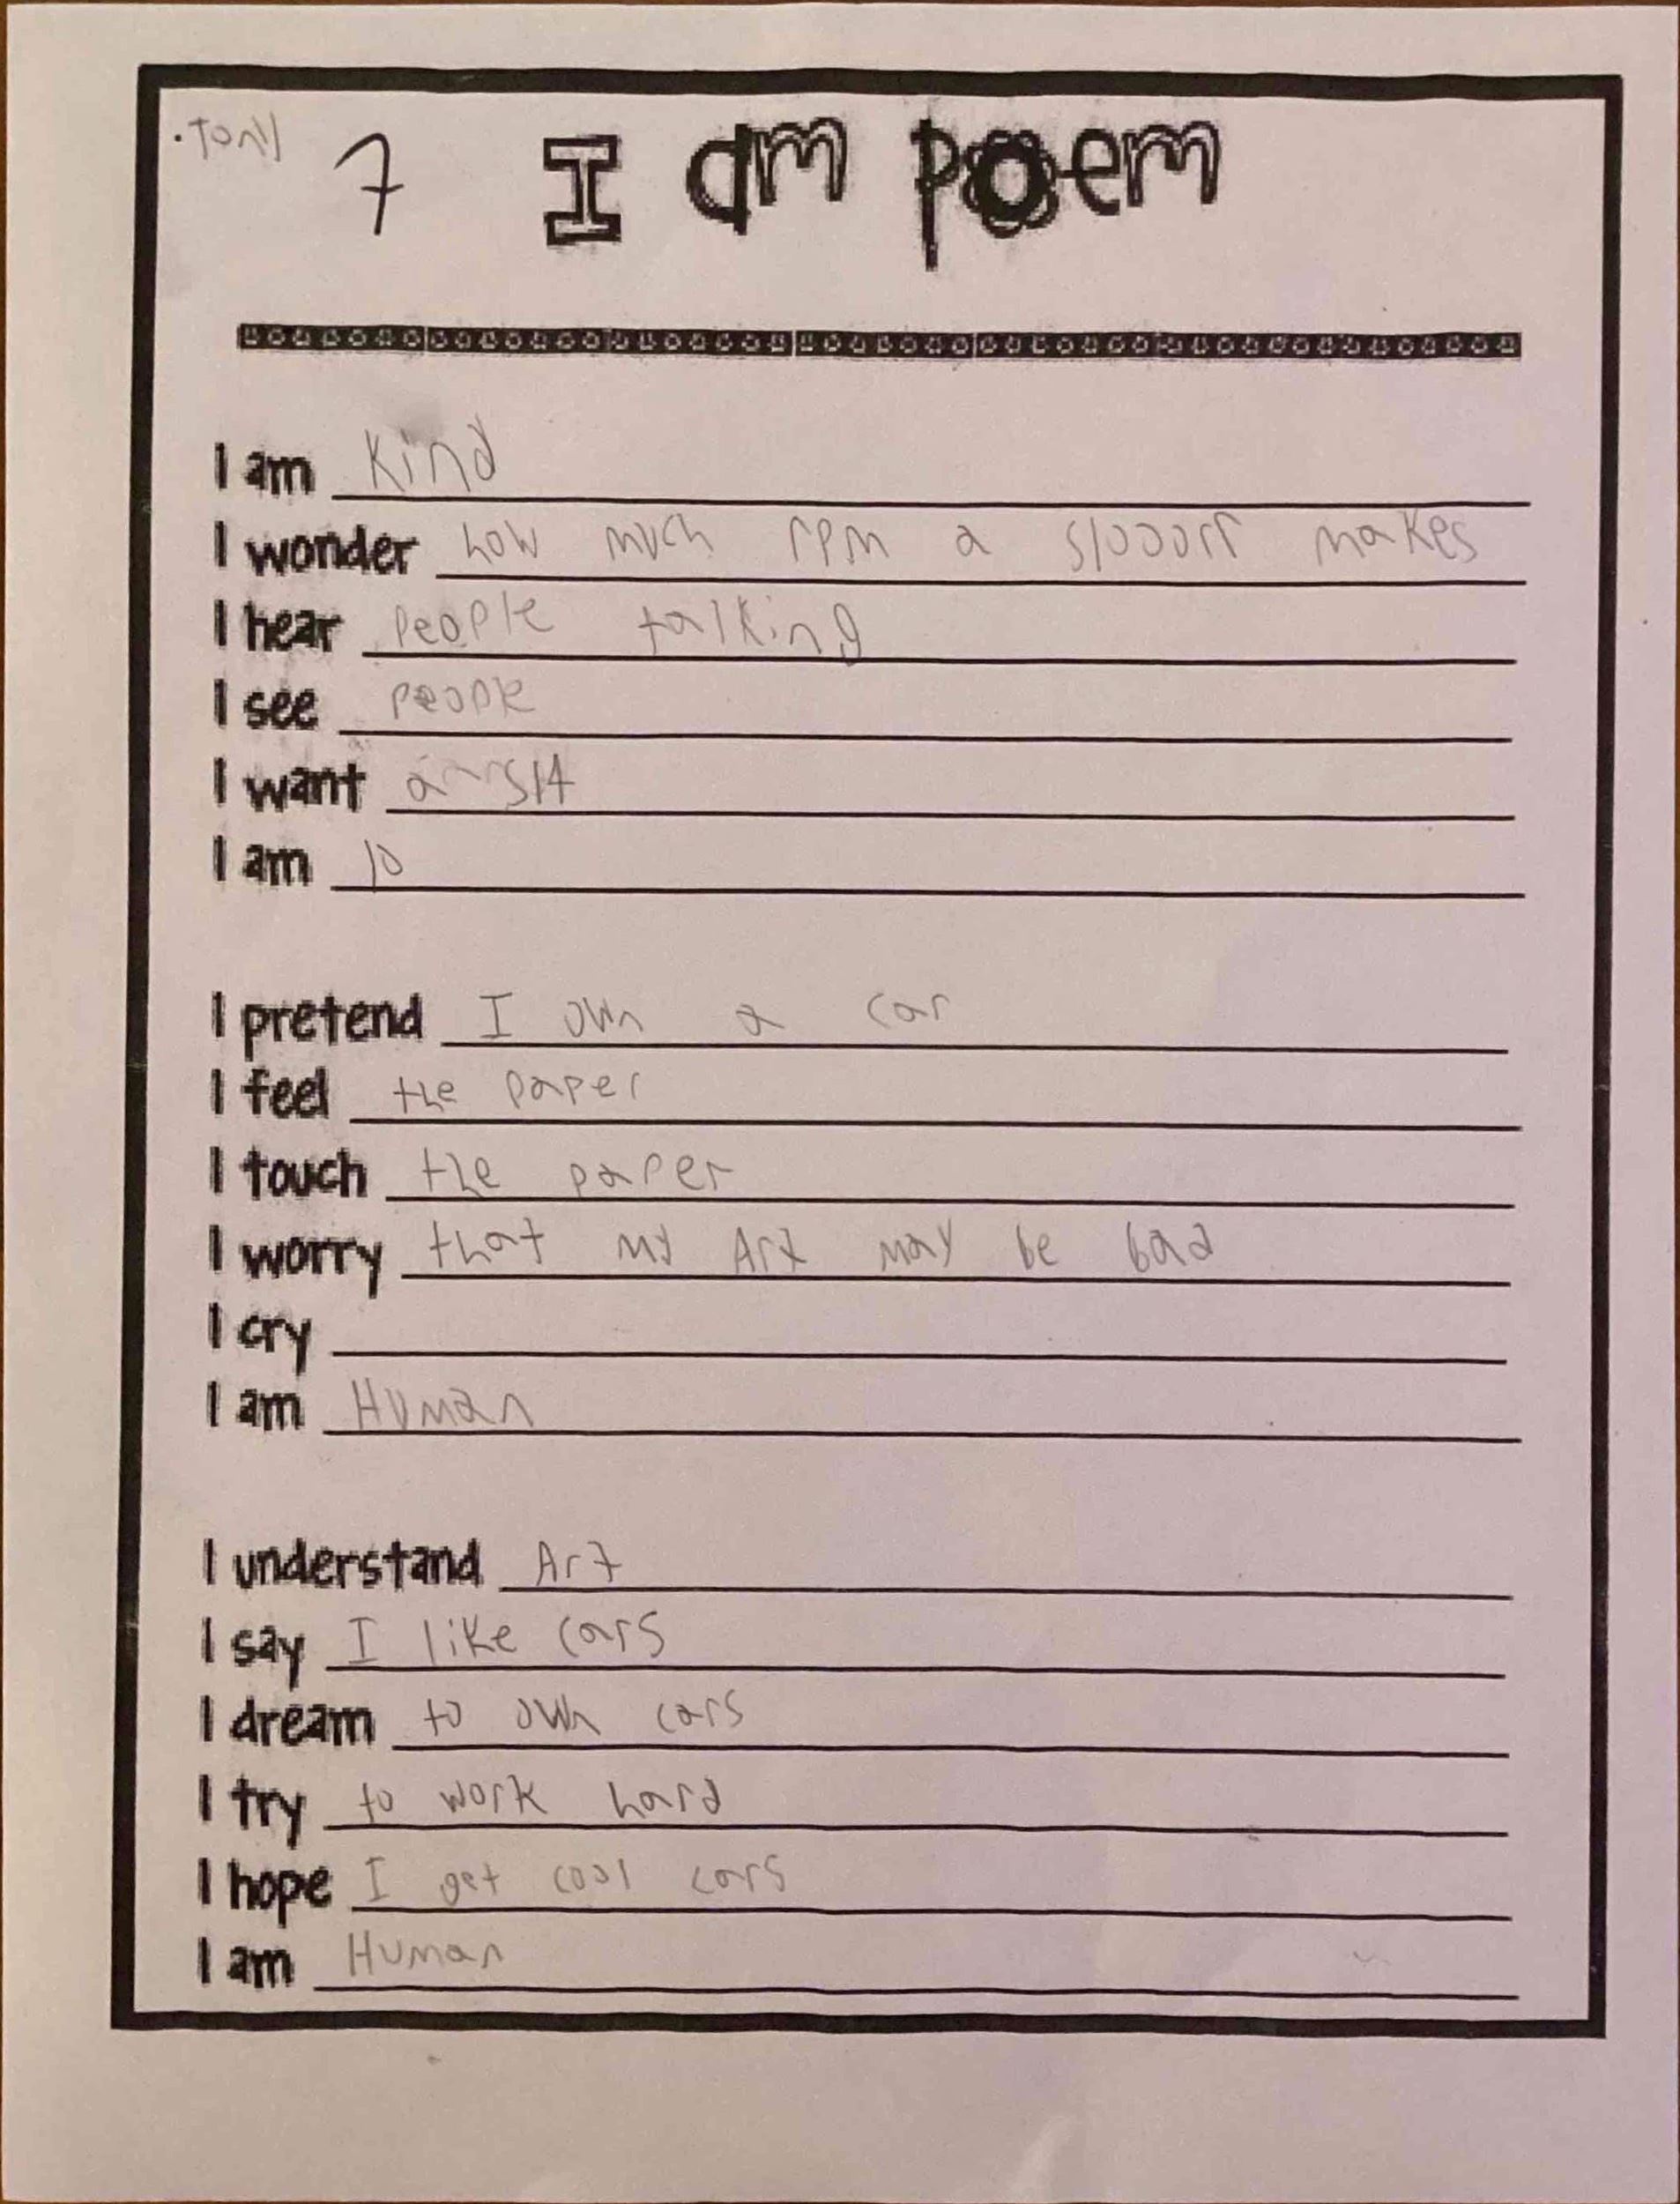 7 I am poem
I am Kind
I wonder how much rpm a s1000rr makes
I hear people talking
I see people
I want a
I am 10
I pretend I own a car
I feel the paper
I touch the paper
I worry that my Art may be bad
I cry
I am Human
I understand Art
I say I like cars
I dream to own cars
I try to work hard
I hope I get cool cars
I am Human